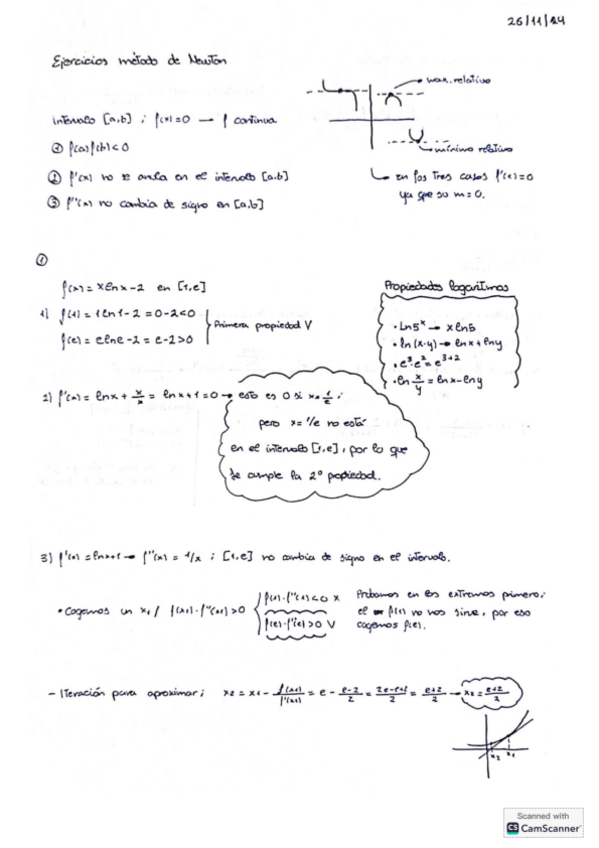 26/11/24
Ejercicios método de Newton
max. relativo
Intervalo [a,b] ; f(x)=0 → f continua
mínimo relativo
① f(a)f(b)<0
② f'(x) no se anula en el intervalo [a,b]
③ f''(x) no cambia de signo en [a,b]
↳ En los tres casos f'(x)=0
ya que su m=0.
①
f(x) = x ln x - 2 en [1,e]
Propiedades logaritmos
1) f(1) = 1 ln 1 - 2 = 0 - 2 < 0
f(e) = e ln e - 2 = e - 2 > 0
Primera propiedad V
· Ln 5^x → x ln 5
· ln (x·y) → ln x + ln y
· e^3·e^2 = e^{3+2}
· ln x/y = ln x - ln y
2) f'(x) = ln x + x/x = ln x + 1 = 0 → esto es 0 si x = 1/e ;
pero x = 1/e no está
en el intervalo [1,e], por lo que
se cumple la 2º propiedad.
3) f'(x) = ln x + 1 → f''(x) = 1/x ; [1,e] no cambia de signo en el intervalo.
· Cogemos un x1 / f(x1)·f''(x1) > 0
f(1)·f''(1) < 0 x
f(e)·f''(e) > 0 V
Probamos en los extremos primero;
el f(1) no nos sirve, por eso
cogemos f(e).
- Iteración para aproximar ; x2 = x1 - f(x1)/f'(x1) = e - e-2/2 = 2e-e+2/2 = e+2/2 → x2 = e+2/2
x2 x1
Scanned with
CS CamScanner